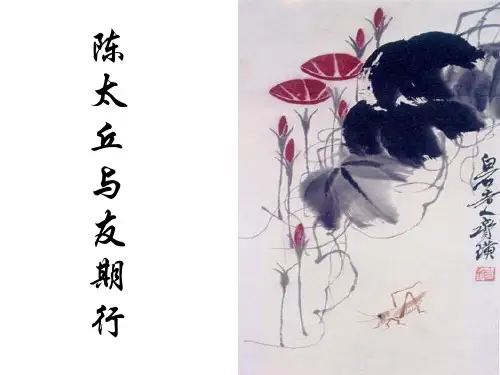 陈太丘与友期行
白石老人齐璜